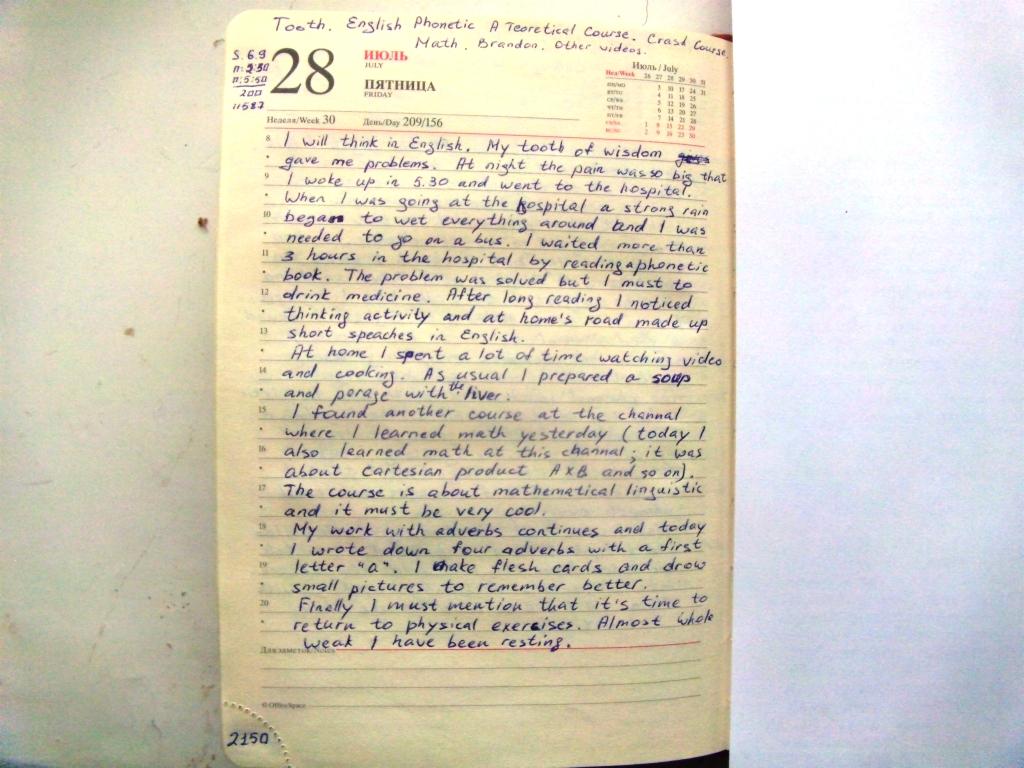 Tooth. English Phonetic A Teoretical Course. Crash Course.
Math. Brandon. Other videos.
S. 6.9
200
11587
28
ИЮЛЬ
JULY
ПЯТНИЦА
FRIDAY
Неделя/Week 30 День/Day 209/156
Июль / July
Нед/Week 26 27 28 29 30 31
пн/mo 3 10 17 24 31
вт/tu 4 11 18 25
ср/we 5 12 19 26
чт/th 6 13 20 27
пт/fr 7 14 21 28
сб/sa 1 8 15 22 29
вс/su 2 9 16 23 30
8 I will think in English. My tooth of wisdom
gave me problems. At night the pain was so big that
9 I woke up in 5.30 and went to the hospital.
When I was going at the hospital a strong rain
10 began to wet everything around and I was
needed to go on a bus. I waited more than
11 3 hours in the hospital by reading a phonetic
book. The problem was solved but I must to
12 drink medicine. After long reading I noticed
thinking activity and at home's road made up
13 short speaches in English.
At home I spent a lot of time watching video
14 and cooking. As usual I prepared a soup
and porage with the liver.
15 I found another course at the channal
where I learned math yesterday (today I
16 also learned math at this channal; it was
about cartesian product A×B and so on).
17 The course is about mathematical linguistic
and it must be very cool.
18 My work with adverbs continues and today
I wrote down four adverbs with a first
19 letter "a". I make flesh cards and drow
small pictures to remember better.
20 Finally I must mention that it's time to
return to physical exercises. Almost whole
weak I have been resting.
Для заметок/Notes
© OfficeSpace
2150